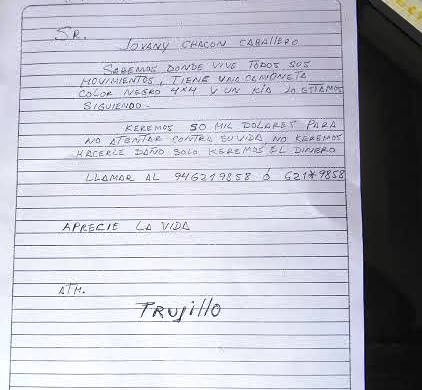 SR.
JOVANY CHACON CABALLERO
SABEMOS DONDE VIVE TODOS SUS
MOVIMIENTOS, TIENE UNA CAMIONETA
COLOR NEGRO 4X4 Y UN KIA LO ESTAMOS
SIGUIENDO.
KEREMOS 50 MIL DOLARES PARA
NO ATENTAR CONTRA SU VIDA NO KEREMOS
HACERLE DAÑO SOLO KEREMOS EL DINERO
LLAMAR AL 946219858 ó 621*9858
APRECIE LA VIDA
ATM.
TRUJILLO